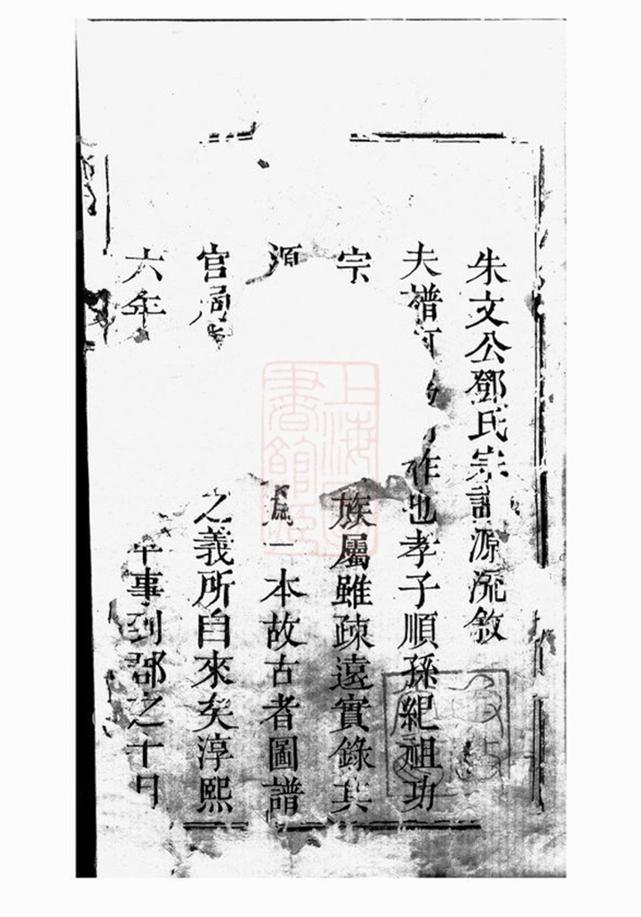 朱文公鄧氏宗譜源流敘
夫譜何為而作也孝子順孫紀祖功
宗 族屬雖疎遠實錄其
源 為一本故古者圖譜
官局 之義所自來矣淳熙
六年 事到郡之十日
上海圖書館藏